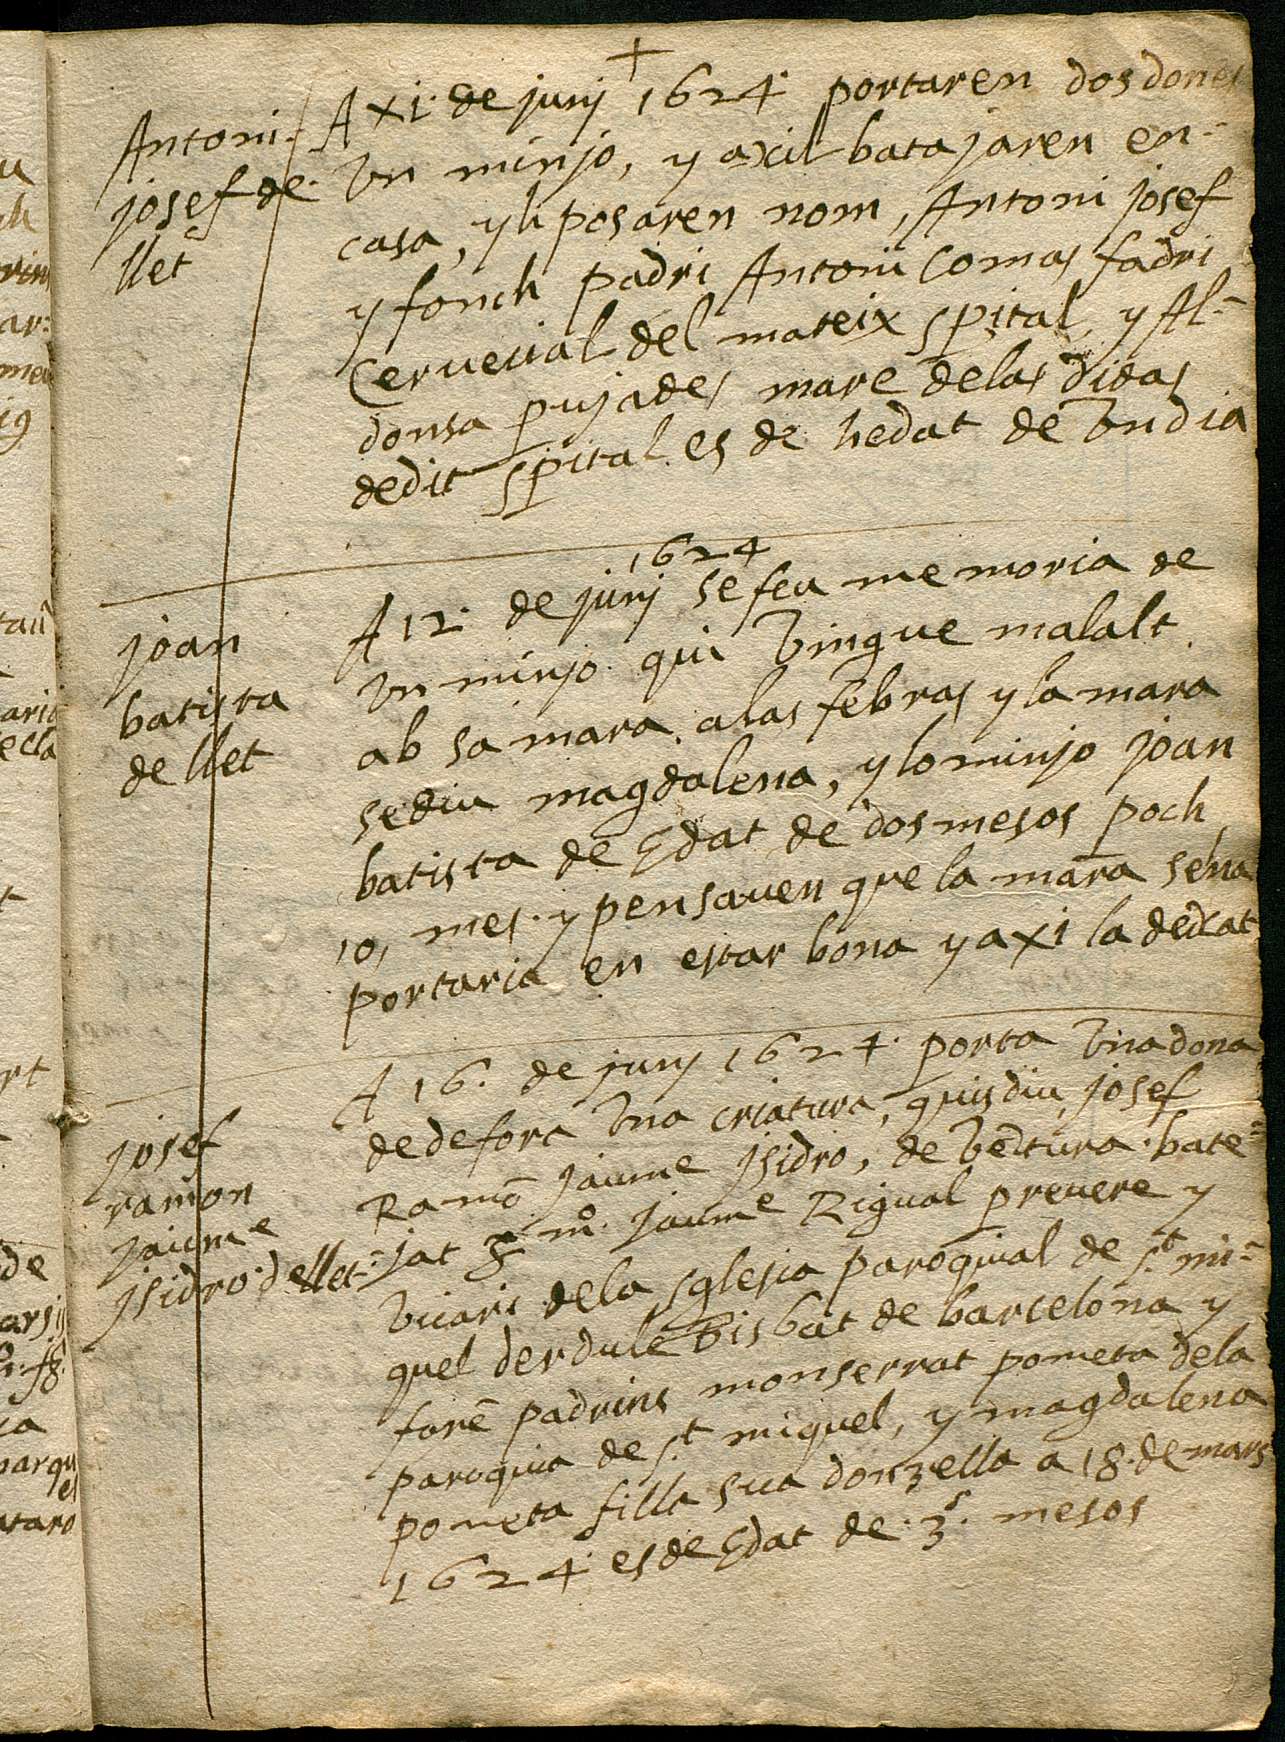 +
Antoni
josef de
llet
A xi. de junj 1624. portaren dos dones
vn minjo, y axil batajaren en-
casa, y li posaren nom, Antoni josef
y fonch padri Antoni Comas fadri
Ceruecial del mateix spital, y Al-
donsa pujades mare de las didas
dedit spital es de hedat de vn dia
joan
batista
de llet
1624
A 12. de junj se feu memoria de
vn minjo qui vingue malalt
ab sa mara a las febras y la mara
se diu magdalena, y lo minjo joan
batista de Edat de dos mesos poch
,o, mes. y pensauen que la mara sehna
portaria en estar bona y axi la dexat
josef
ramon
jaume
jsidro. de llet.
A 16. de junj 1624. porta vna dona
de defora vna criatura, quis diu josef
Ramō jaume jsidro, de ventura. bate-
jat per mº. jaume Rigual preuere y
vicari dela sglesia paroquial de st. mi-
quel derdule bisbat de barcelona y
forē padrins monserrat pometa dela
paroquia de st. miquel, y magdalena
pometa filla sua donzella a 18. de mars
1624. es de Edat de. 3. mesos